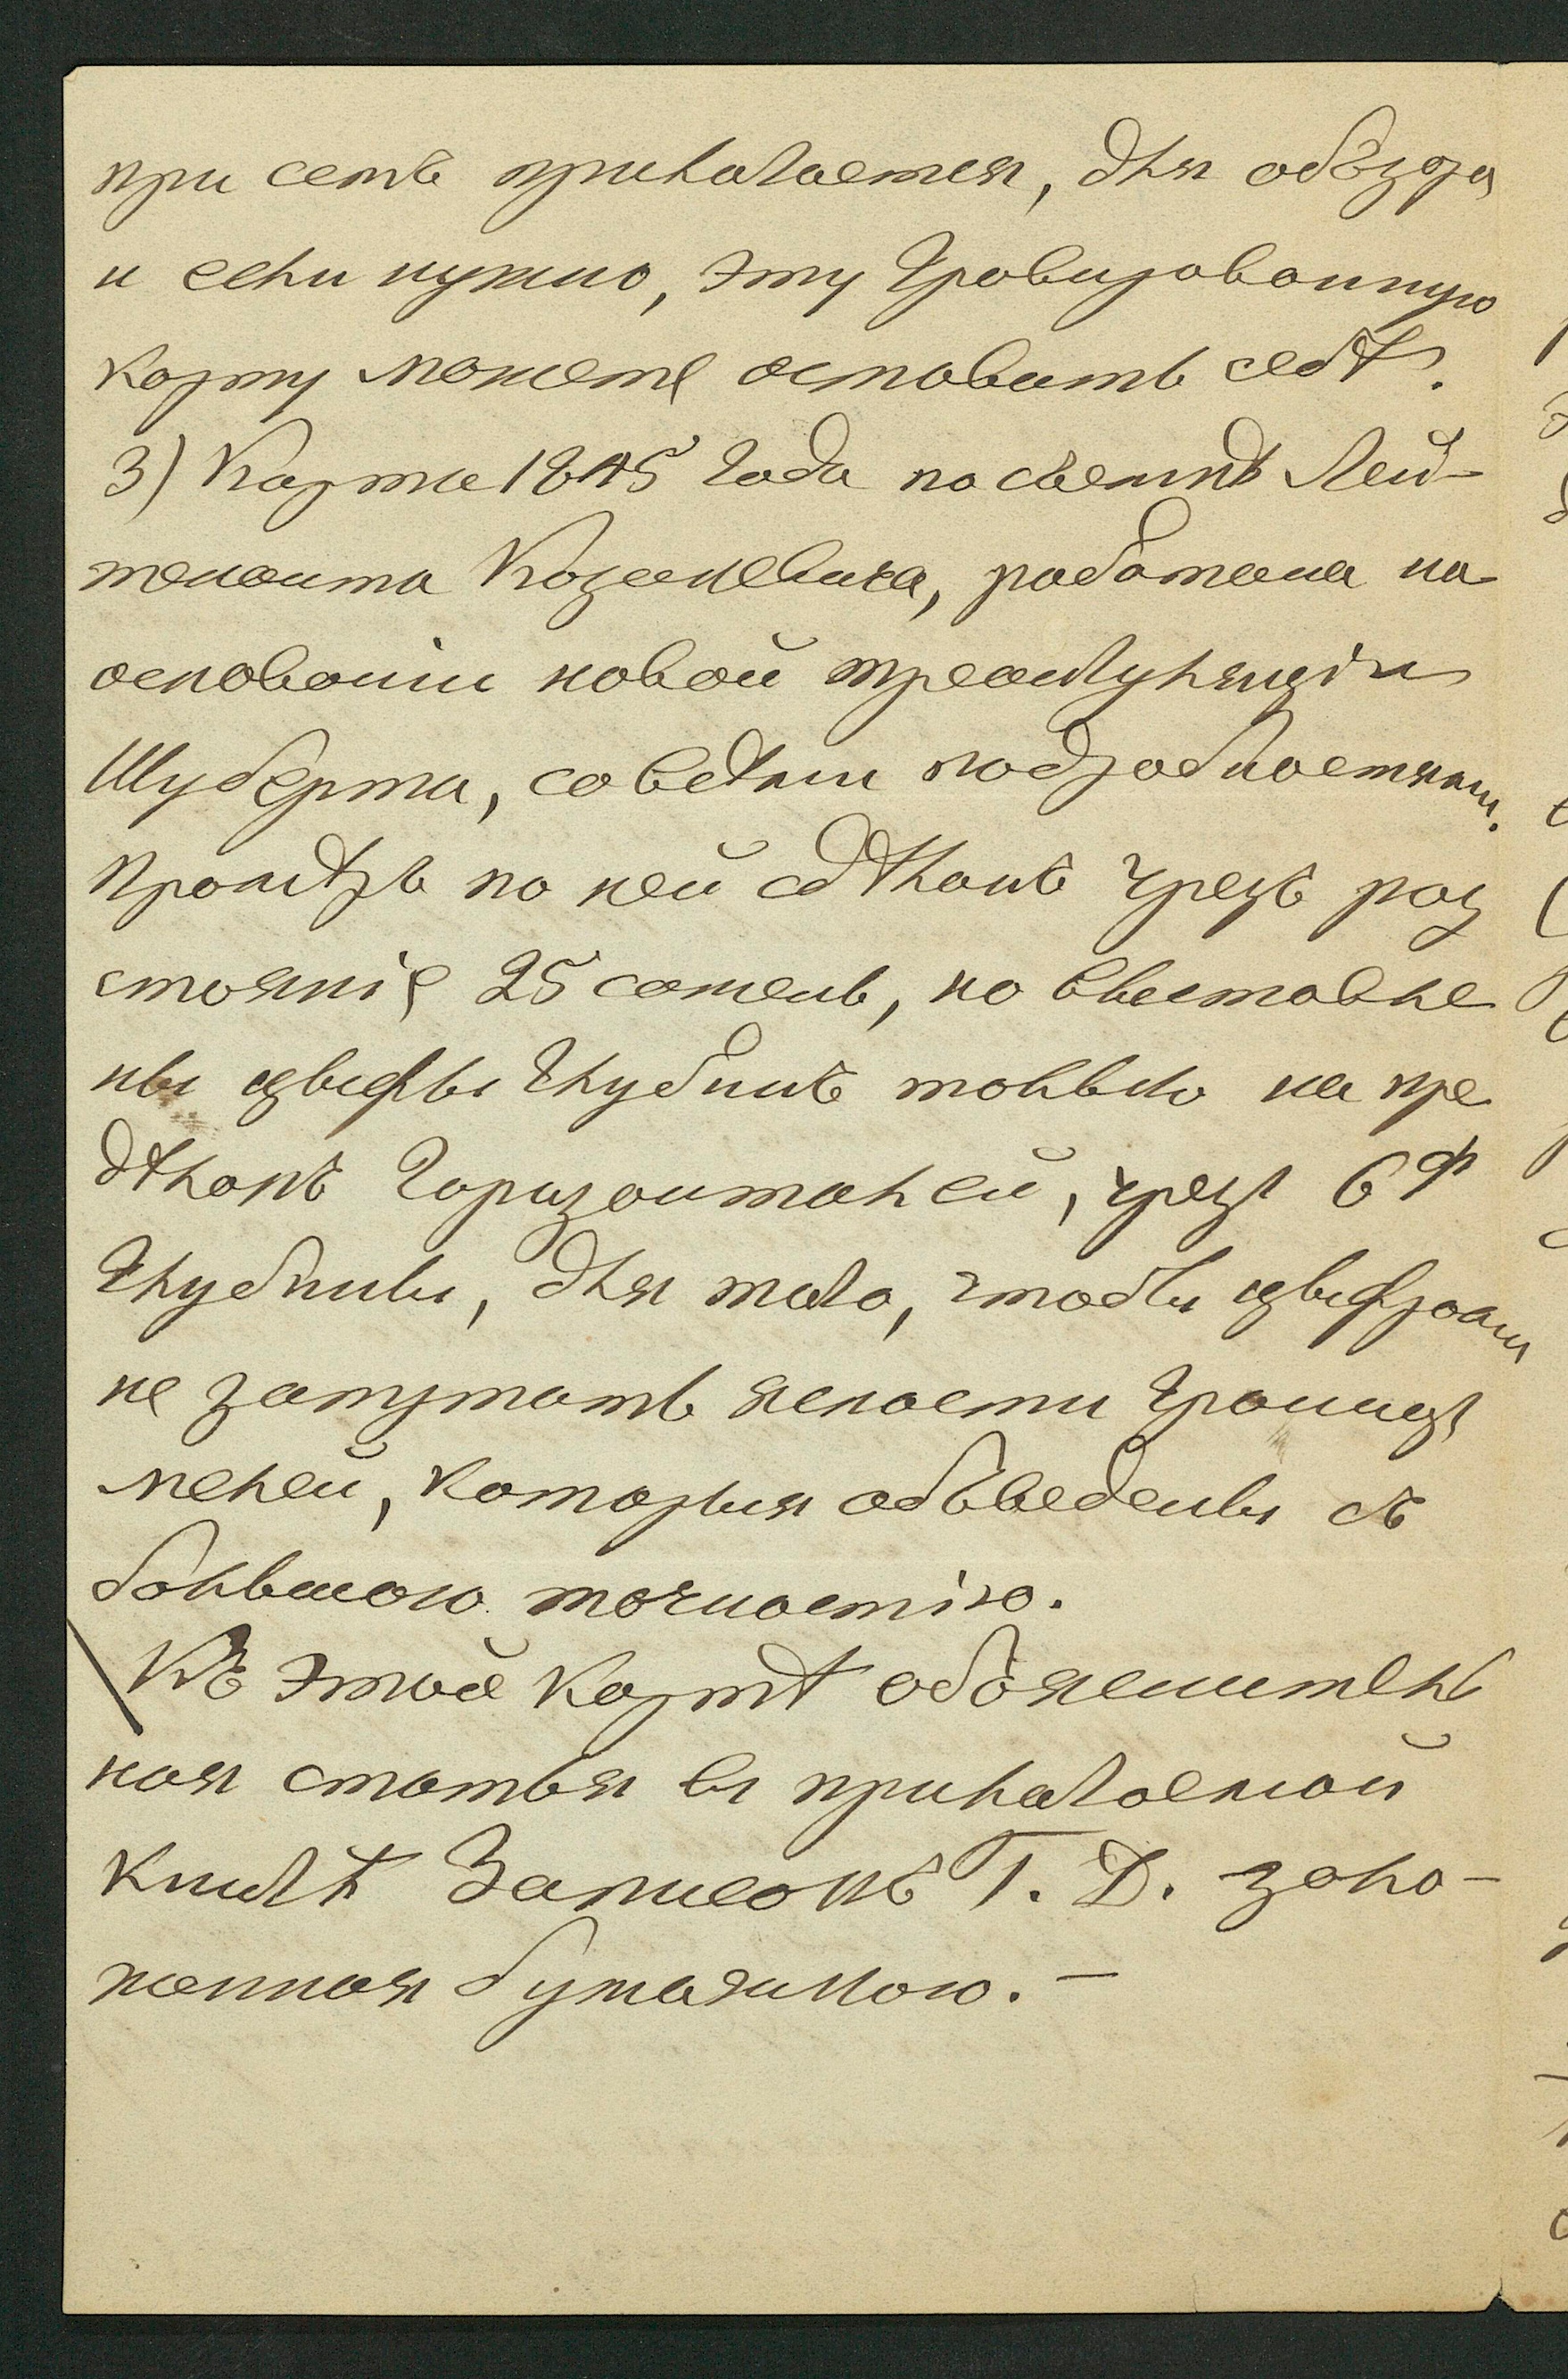 при семъ прилагается, для обзора
и если нужно, эту гравированную
карту можете оставить себѣ.
3) Карта 1845 года по съемкѣ Лей-
тенанта Козакевича, работана на
основаніи новой треангуляціи
Шуберта, со всѣми подробностями.
Промѣръ по ней сдѣланъ чрезъ раз
стояніе 25 сажень, но выставле
ны цыфры глубинъ только на пре
дѣлахъ горизонталей, чрезъ 6 ф
глубины, для того, чтобы цыфрами
не запутать ясности границъ
мелей, которыя обведены съ
большою точностію.
Къ этой картѣ объяснитель
ная статья въ прилагаемой
книгѣ Записокъ Г. Д. зало-
женная бумажкою. —